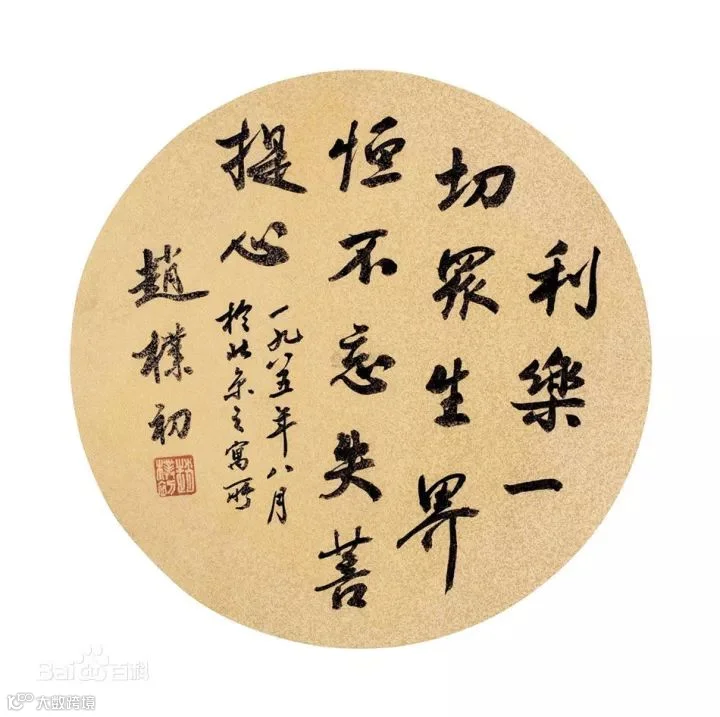 利樂一
切眾生界
恒不忘失菩
提心
一九八五年八月
於北京之寓所
趙樸初
趙樸初
Baidu百科
大数跨境